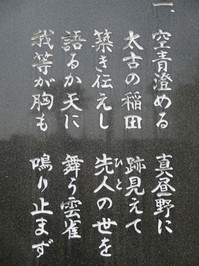 一、空青澄める 真昼野に
太古の稲田 跡見えて
築き伝えし 先人の世を
ひと
語るか天に 舞う雲雀
我等が胸も 鳴り止まず